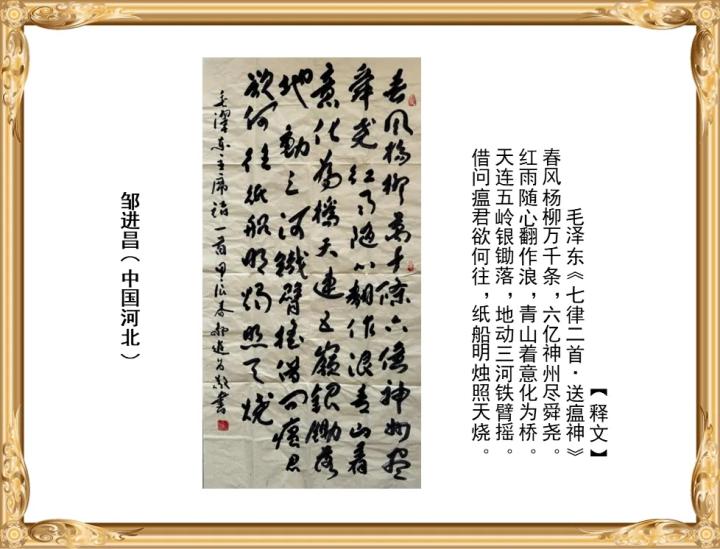 【释文】
毛泽东《七律二首·送瘟神》
春风杨柳万千条，六亿神州尽舜尧。
红雨随心翻作浪，青山着意化为桥。
天连五岭银锄落，地动三河铁臂摇。
借问瘟君欲何往，纸船明烛照天烧。
春風楊柳萬千條六億神州盡
舜堯紅雨隨心翻作浪青山着
意化為橋天連五嶺銀鋤落
地動三河鐵臂搖借問瘟君
欲何往紙船明燭照天燒
毛澤東主席詩一首甲辰春鄒進昌敬書
邹进昌（中国河北）